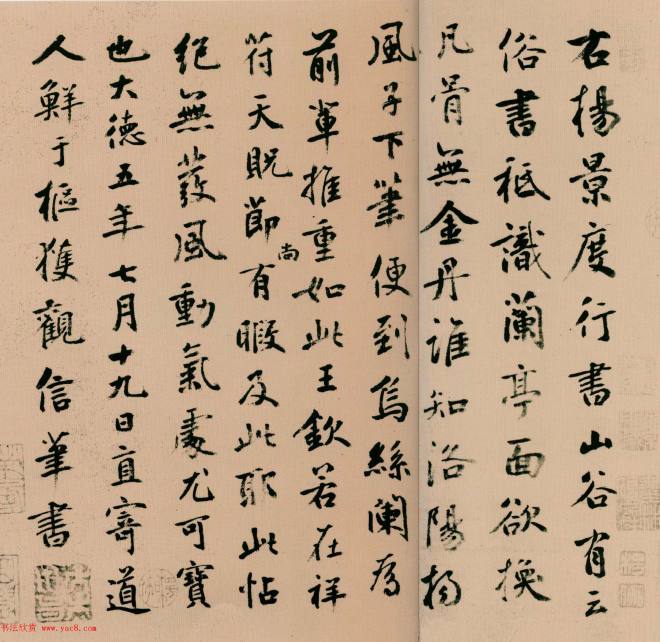 右楊景度行書山谷有云
俗書秪識蘭亭面欲換
凡骨無金丹誰知洛陽楊
風子下筆便到烏絲闌為
前輩推重如此王欽若在祥
符天貺節尚有暇及此耶此帖
絕無發風動氣處尤可寶
也大德五年七月十九日直寄道
人鮮于樞獲觀信筆書
书法欣赏 www.yac8.com